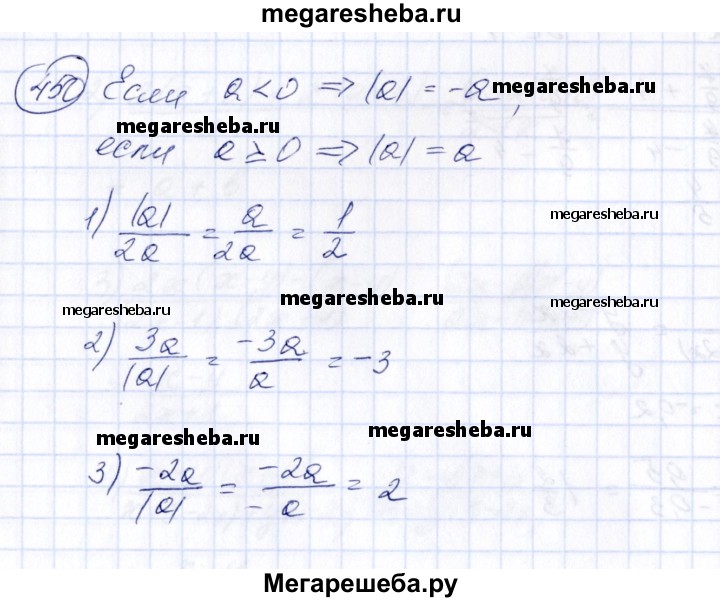 megaresheba.ru
450 Если a < 0 => |a| = -a, megaresheba.ru
megaresheba.ru
если a ≥ 0 => |a| = a
1) |a|/2a = a/2a = 1/2 megaresheba.ru
megaresheba.ru
megaresheba.ru
2) 3a/|a| = -3a/a = -3
megaresheba.ru
megaresheba.ru
3) -2a/|a| = -2a/-a = 2
megaresheba.ru
Мегарешеба.ру